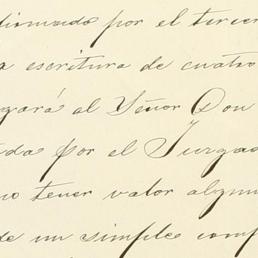 dionado por el tercer
a escritura de cuatro
gará al Señor Don
da por el Juzgad
no tener valor algun
de un simple comp